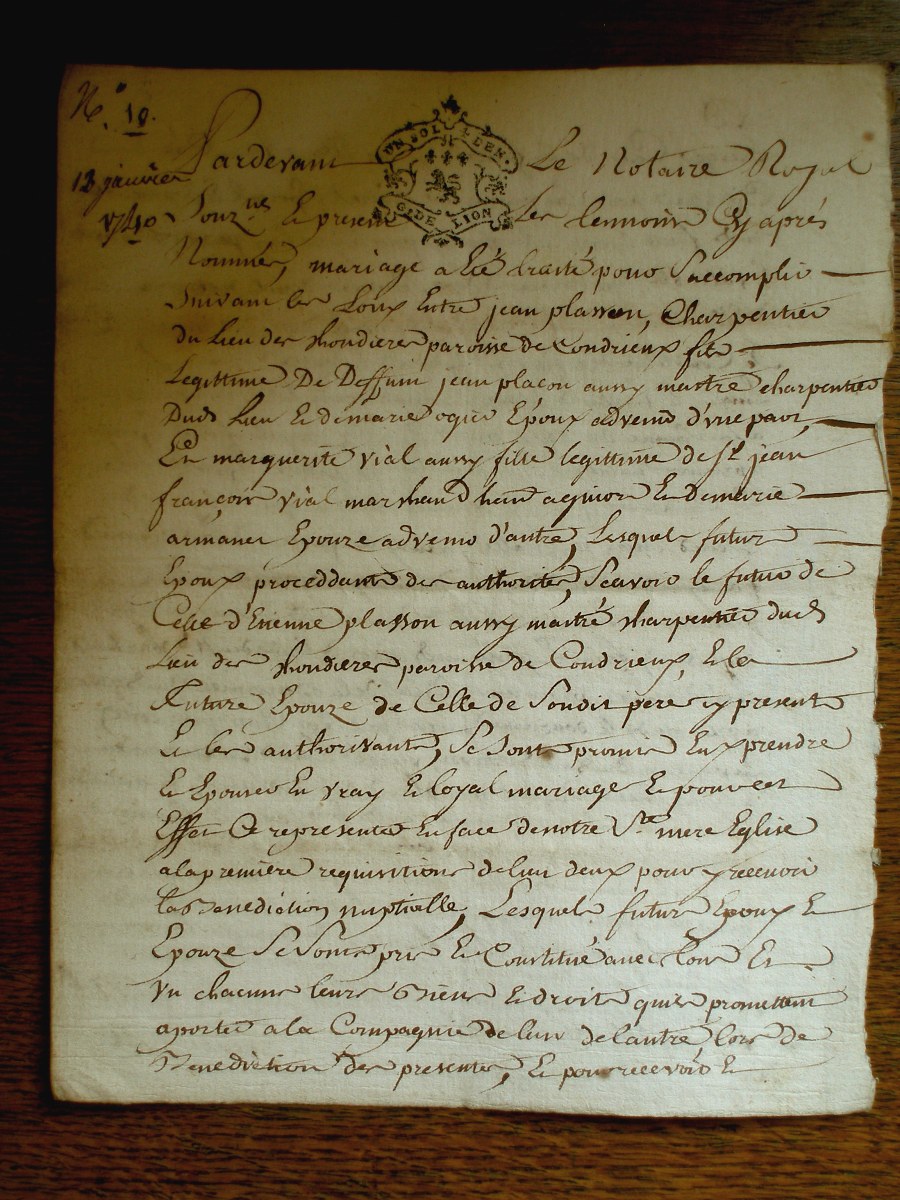 N.° 10.
13 janvier
1740
UN SOL 4 DEN.
G. DE LION
Pardevant Le Notaire Royal
Souz.né Et presents Les temoins Cy aprés
Nommés, mariage a Eté traité pour S'accomplir
Suivant les Loix Entre jean plasson, Charpentier
du Lieu des paroisse de Condrieux fils
Legittime De Deffunt jean placon aussy maitre charpentier
Dud. Lieu Et de marie ogier Epoux advenir d'une part,
Et marguerite vial aussy fille legittime de Sr. jean
françois vial marchand Et de marie
armanet Epouze advenir d'autre, Lesquels futurs
Epoux proceddants des authorités, Scavoir le futur de
Celle d'Etienne plasson aussy maitre charpentier dud.
Lieu des paroisse de Condrieux, Et la
Future Epouze de Celle de Sondit pere cy present
Et les authorisants, Se Sont promis Eux prendre
Et Epouser En vray Et loyal mariage Et pour cet
Effet Se representer En face de notre Ste. mere Eglise
a la premiere requisition de lun deux pour y recevoir
la Benediction nuptialle, Lesquels futurs Epoux Et
Epouze Se Sont pris Et Constitué avec tous Et
Un chacuns leurs Biens Et droits quils promettent
aporter a la Compagnie de lun de lautre lors de
Benediction des presentes, Et pour recevoir Et